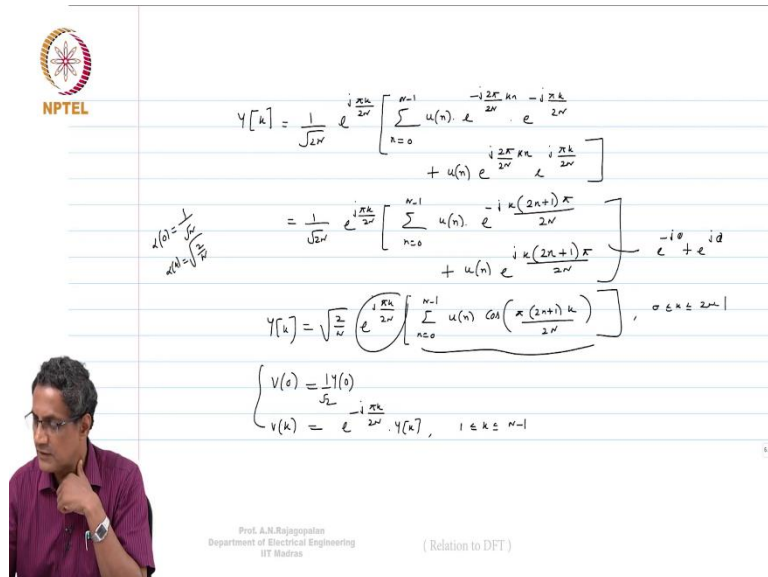 NPTEL
Y[k] = 1/√2N e^{jπk/2N} [ Σ_{n=0}^{N-1} u(n). e^{-j2π/2N kn} . e^{-jπk/2N}
+ u(n) e^{j2π/2N kn} e^{jπk/2N} ]
α(0) = 1/√N
α(k) = √2/N
= 1/√2N e^{jπk/2N} [ Σ_{n=0}^{N-1} u(n). e^{-jk(2n+1)π/2N}
+ u(n) e^{jk(2n+1)π/2N} ]
e^{-jθ} + e^{jθ}
Y[k] = √2/N e^{jπk/2N} [ Σ_{n=0}^{N-1} u(n) cos(π(2n+1)k/2N) ] , 0 ≤ k ≤ 2N-1
V(0) = 1/√2 Y(0)
V(k) = e^{-jπk/2N} . Y[k], 1 ≤ k ≤ N-1
Prof. A.N.Rajagopalan
Department of Electrical Engineering
IIT Madras
( Relation to DFT )